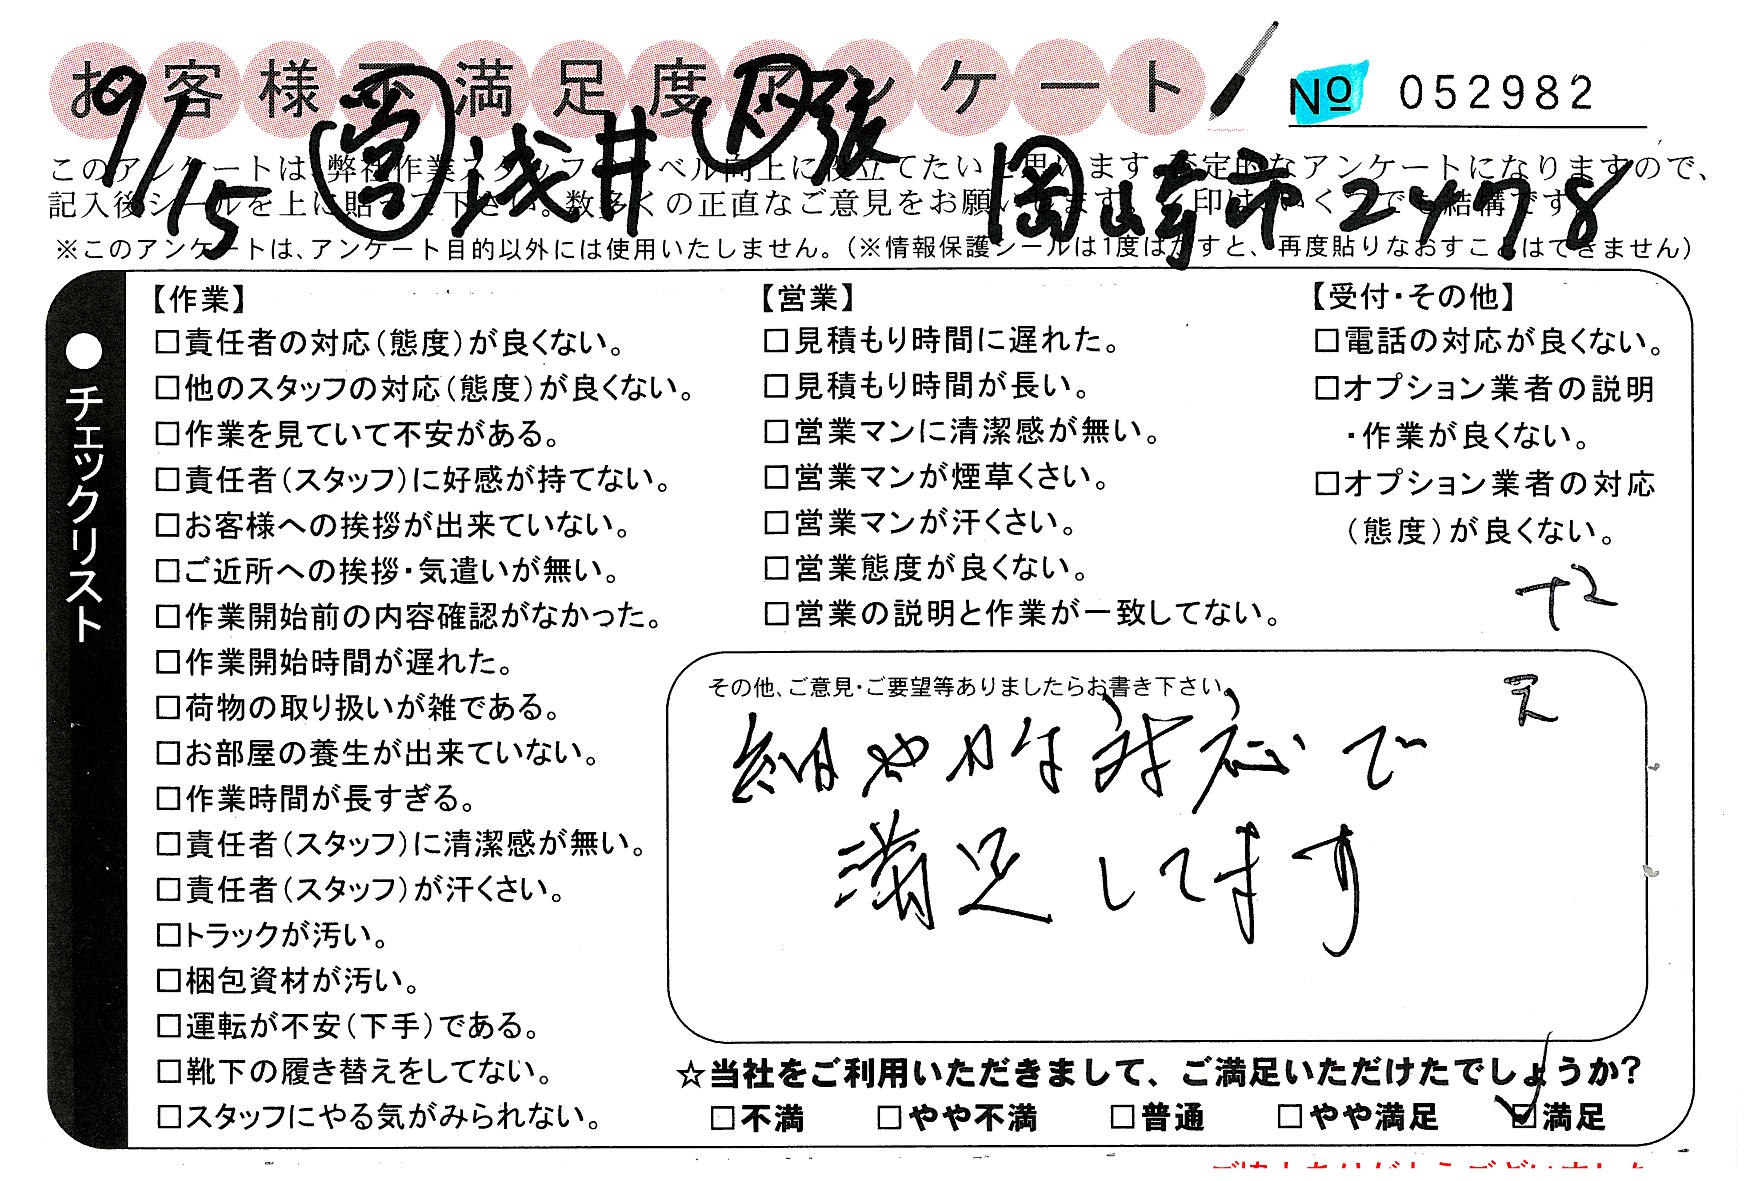 お客様不満足度アンケート
No 052982
9/15 営 浅井 尾張 岡崎市 2478
このアンケートは、弊社作業スタッフのレベル向上に役立てたいと思います。否定的なアンケートになりますので、
記入後シールを上に貼って下さい。数多くの正直なご意見をお願いします。レ印はいくつでも結構です。
※このアンケートは、アンケート目的以外には使用いたしません。(※情報保護シールは1度はがすと、再度貼りなおすことはできません)
●チェックリスト
【作業】
□責任者の対応(態度)が良くない。
□他のスタッフの対応(態度)が良くない。
□作業を見ていて不安がある。
□責任者(スタッフ)に好感が持てない。
□お客様への挨拶が出来ていない。
□ご近所への挨拶・気遣いが無い。
□作業開始前の内容確認がなかった。
□作業開始時間が遅れた。
□荷物の取り扱いが雑である。
□お部屋の養生が出来ていない。
□作業時間が長すぎる。
□責任者(スタッフ)に清潔感が無い。
□責任者(スタッフ)が汗くさい。
□トラックが汚い。
□梱包資材が汚い。
□運転が不安(下手)である。
□靴下の履き替えをしてない。
□スタッフにやる気がみられない。
【営業】
□見積もり時間に遅れた。
□見積もり時間が長い。
□営業マンに清潔感が無い。
□営業マンが煙草くさい。
□営業マンが汗くさい。
□営業態度が良くない。
□営業の説明と作業が一致してない。
【受付・その他】
□電話の対応が良くない。
□オプション業者の説明
・作業が良くない。
□オプション業者の対応
(態度)が良くない。
その他、ご意見・ご要望等ありましたらお書き下さい。
細やかな対応で
満足してます
☆当社をご利用いただきまして、ご満足いただけたでしょうか?
□不満 □やや不満 □普通 □やや満足 ☑満足